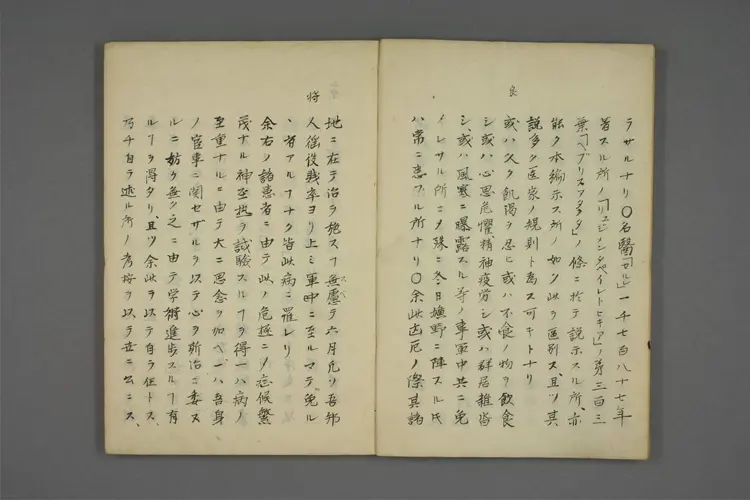 ラサルナリ〇名醫「カル」一千七百八十七年
著スル所ノ「リユジメンタペイレトヒギアア」ノ第三百三
葉「ヘブリスアタタ」ノ條ニ於テ説示スル所亦
能ク本編示ス所ノ如ク此ヲ區別ス且ツ其
説多ク医家ノ規則ト為ス可キトナリ
或ハ久ク飢渇ヲ忍ヒ或ハ不食ノ物ヲ飲食
シ或ハ心思危懼精神疲労シ或ハ群居雑沓
シ或ハ風寒ニ曝露スル等ノ事軍中共ニ免
ノレサル所ニ〆殊ニ冬日壙野ニ陣スル氏
ハ常ニ患フル所ナリ〇余此

ノ際其諸
地ニ在テ治ヲ施スフ無慮六月凡ソ吾邦
人徭役戦卒ヨリ上ミ軍中ニ至ルマテ免ル
、者アルフナク皆此病ニ罹レリ
余右ノ諸患者ニ由テ此ノ危極ニ〆症候繁
茂ナル神圣熱ヲ試験スルフヲ得一ハ病ノ
至重ナルニ由テ大ニ思念ヲ加ヘ一ハ吾身
ノ官事ニ関セザルヲ以テ心ヲ斫治ニ委ス
ルニ妨ケ無ク之ニ由テ学術進歩スルフ有
ルフヲ得タリ且ツ余此ヲ以テ自ラ任トス
乃チ自ラ述ル所ノ考按ヲ以テ世ニ公ニス
将